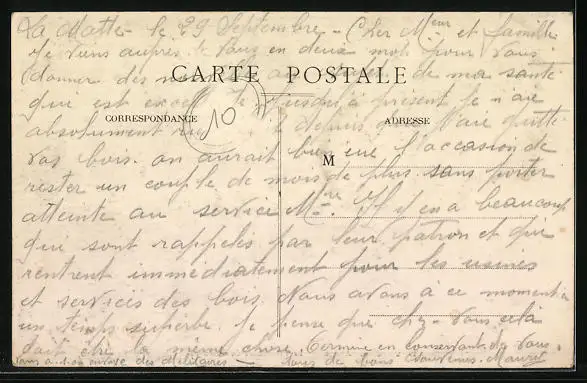 La Motte - le 29 Septembre - Cher Mr et famille
Je viens auprès de vous en deux mots pour vous
donner des de ma santé
CARTE POSTALE
que est jusqu'à présent je n'ai
CORRESPONDANCE
ADRESSE
10
absolument depuis que j'ai quitté
vos bois. on aurait bien eue l'accasion de
M
rester un couple de mois de plus sans porter
atteinte au service Mre. Il y en a beaucoup
qui sont rappelés par leur patron et qui
rentrent immédiatement pour les usines
et services des bois. Nous avons à ce moment ci
un temps superbe. Je pense que chez-vous cela
doit être la même chose. Termine en conservant de vous,
des Militaires - de bons Souvenirs.